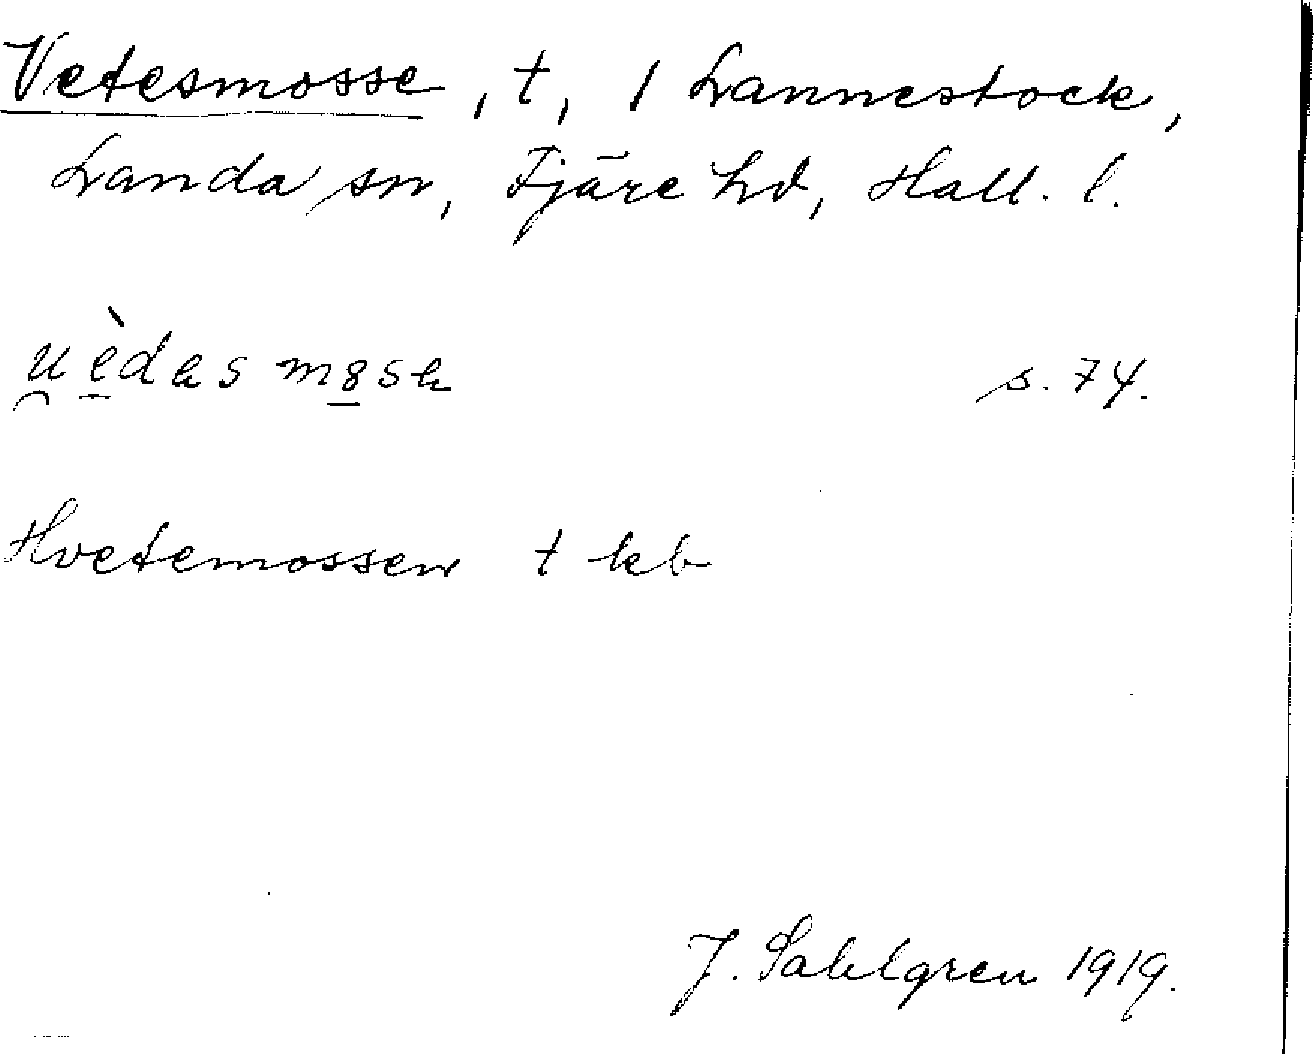 Vetesmosse, t, 1 Lannestock,
Landa sn, Fjäre hd, Hall. l.
u̯èdas m8sa s. 74.
Hvetemossen t kb
J. Sahlgren 1919.